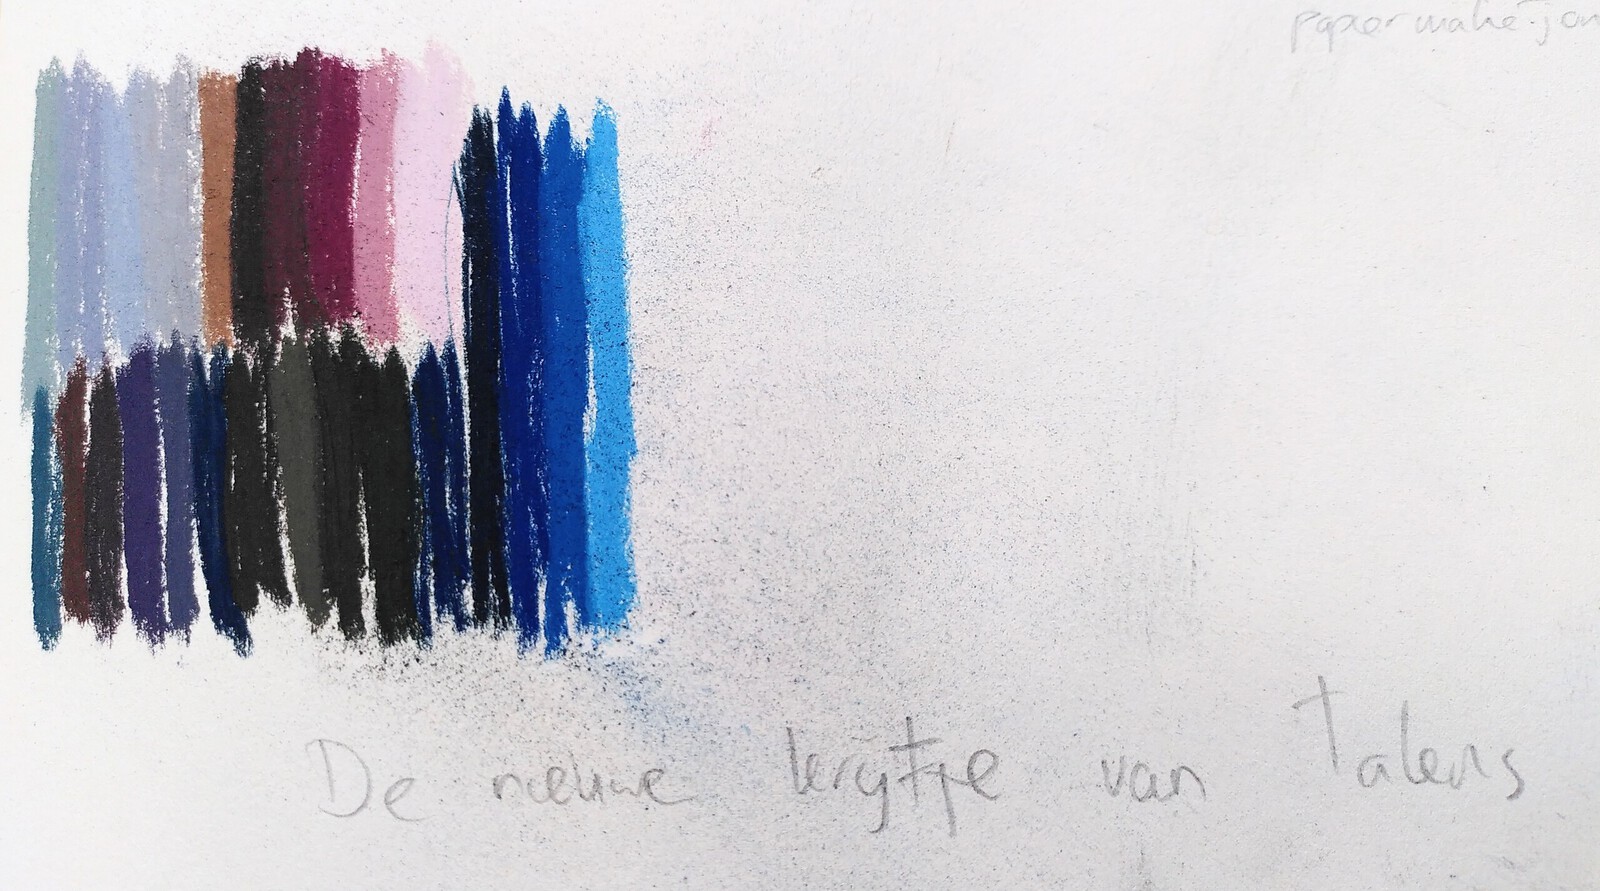 papier maché-jon
De nieuwe krijtje van Talens